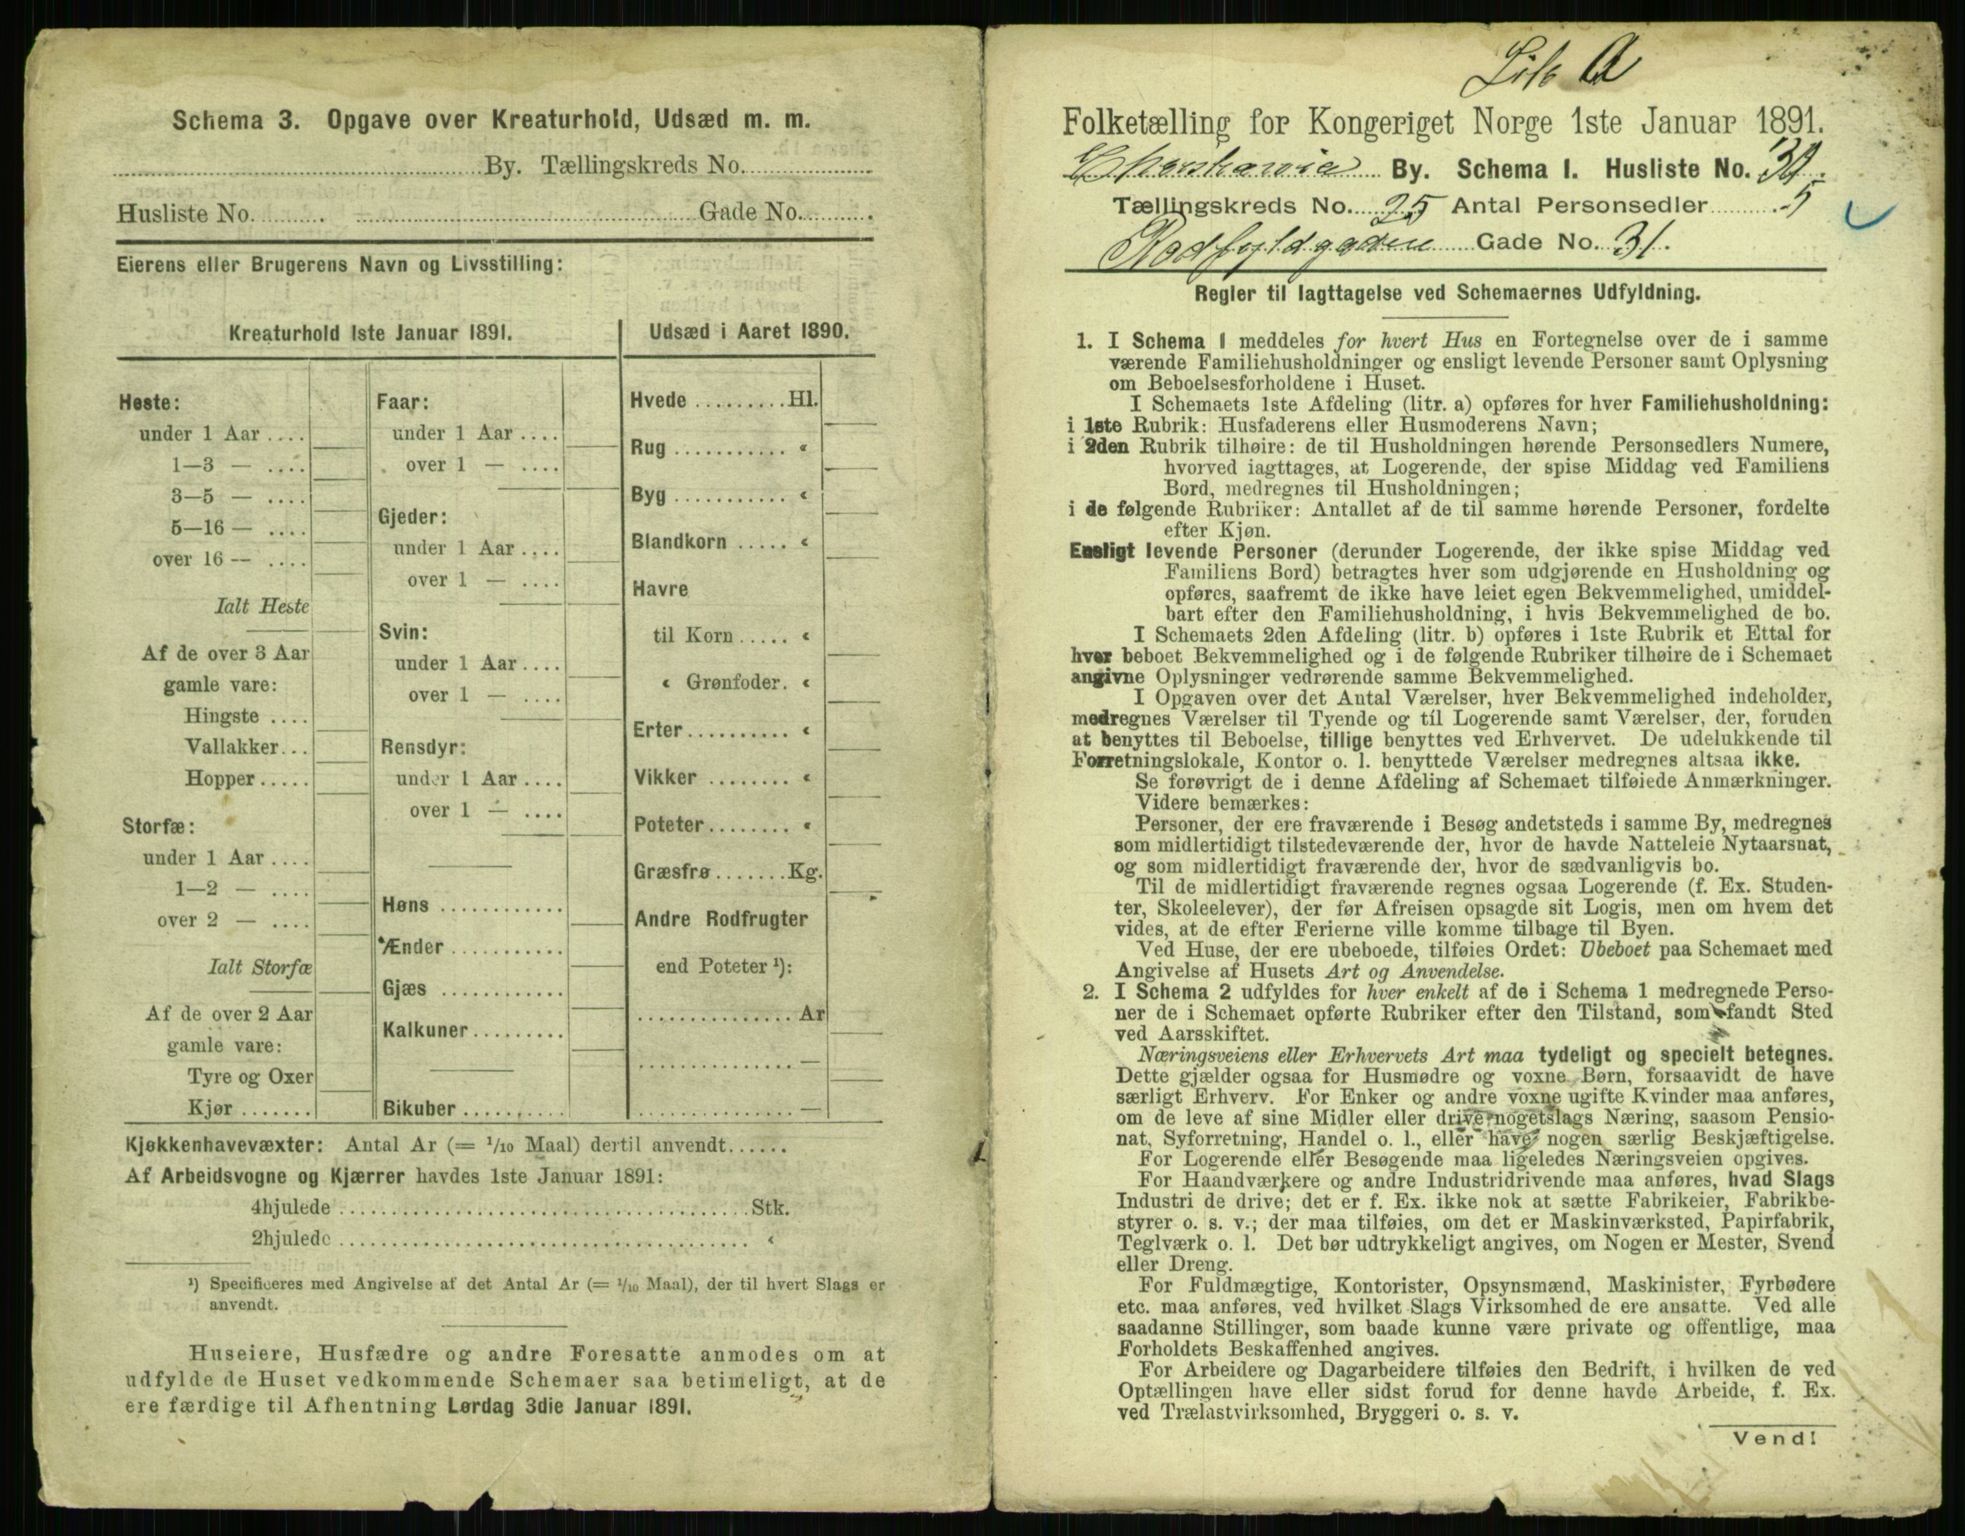 Schema 3. Opgave over Kreaturhold, Udsæd m. m.
By. Tællingskreds No.
Husliste No. Gade No.
Eierens eller Brugerens Navn og Livsstilling:
Kreaturhold 1ste Januar 1891.
Heste:
under 1 Aar ....
1—3 — ....
3—5 — ....
5—16 — ....
over 16 — ....
Ialt Heste
Af de over 3 Aar
gamle vare:
Hingste ....
Vallakker...
Hopper .....
Storfæ:
under 1 Aar ....
1—2 — ....
over 2 — ....
Ialt Storfæ
Af de over 2 Aar
gamle vare:
Tyre og Oxer
Kjør .......
Faar:
under 1 Aar ....
over 1 — ....
Gjeder:
under 1 Aar ....
over 1 — ....
Svin:
under 1 Aar ....
over 1 — ....
Rensdyr:
under 1 Aar ....
over 1 — ....
Høns ............
Ænder ...........
Gjæs ............
Kalkuner .........
Bikuber ..........
Udsæd i Aaret 1890.
Hvede ......... Hl.
Rug ........... «
Byg ........... «
Blandkorn ..... «
Havre
til Korn ..... «
« Grønfoder. «
Erter .......... «
Vikker ........ «
Poteter ........ «
Græsfrø ....... Kg.
Andre Rodfrugter
end Poteter ¹):
............... Ar
............... —
............... —
Kjøkkenhavevæxter: Antal Ar (= 1/10 Maal) dertil anvendt......
Af Arbeidsvogne og Kjærrer havdes 1ste Januar 1891:
4hjulede ........ Stk.
2hjulede ........ «
¹) Specificeres med Angivelse af det Antal Ar (= 1/10 Maal), der til hvert Slags er
anvendt.
Huseiere, Husfædre og andre Foresatte anmodes om at
udfylde de Huset vedkommende Schemaer saa betimeligt, at de
ere færdige til Afhentning Lørdag 3die Januar 1891.
A
Folketælling for Kongeriget Norge 1ste Januar 1891.
By. Schema I. Husliste No.
Tællingskreds No. 25 Antal Personsedler 5
Gade No. 31.
Regler til Iagttagelse ved Schemaernes Udfyldning.
1. I Schema 1 meddeles for hvert Hus en Fortegnelse over de i samme
værende Familiehusholdninger og ensligt levende Personer samt Oplysning
om Beboelsesforholdene i Huset.
I Schemaets 1ste Afdeling (litr. a) opføres for hver Familiehusholdning:
i 1ste Rubrik: Husfaderens eller Husmoderens Navn;
i 2den Rubrik tilhøire: de til Husholdningen hørende Personsedlers Numere,
hvorved iagttages, at Logerende, der spise Middag ved Familiens
Bord, medregnes til Husholdningen;
i de følgende Rubriker: Antallet af de til samme hørende Personer, fordelte
efter Kjøn.
Ensligt levende Personer (derunder Logerende, der ikke spise Middag ved
Familiens Bord) betragtes hver som udgjørende en Husholdning og
opføres, saafremt de ikke have leiet egen Bekvemmelighed, umiddel-
bart efter den Familiehusholdning, i hvis Bekvemmelighed de bo.
I Schemaets 2den Afdeling (litr. b) opføres i 1ste Rubrik et Ettal for
hver beboet Bekvemmelighed og i de følgende Rubriker tilhøire de i Schemaet
angivne Oplysninger vedrørende samme Bekvemmelighed.
I Opgaven over det Antal Værelser, hver Bekvemmelighed indeholder,
medregnes Værelser til Tyende og til Logerende samt Værelser, der, foruden
at benyttes til Beboelse, tillige benyttes ved Erhvervet. De udelukkende til
Forretningslokale, Kontor o. l. benyttede Værelser medregnes altsaa ikke.
Se forøvrigt de i denne Afdeling af Schemaet tilføiede Anmærkninger.
Videre bemærkes:
Personer, der ere fraværende i Besøg andetsteds i samme By, medregnes
som midlertidigt tilstedeværende der, hvor de havde Natteleie Nytaarsnat,
og som midlertidigt fraværende der, hvor de sædvanligvis bo.
Til de midlertidigt fraværende regnes ogsaa Logerende (f. Ex. Studen-
ter, Skoleelever), der før Afreisen opsagde sit Logis, men om hvem det
vides, at de efter Ferierne ville komme tilbage til Byen.
Ved Huse, der ere ubeboede, tilføies Ordet: Ubeboet paa Schemaet med
Angivelse af Husets Art og Anvendelse.
2. I Schema 2 udfyldes for hver enkelt af de i Schema 1 medregnede Perso-
ner de i Schemaet opførte Rubriker efter den Tilstand, som fandt Sted
ved Aarsskiftet.
Næringsveiens eller Erhvervets Art maa tydeligt og specielt betegnes.
Dette gjælder ogsaa for Husmødre og voxne Børn, forsaavidt de have
særligt Erhverv. For Enker og andre voxne ugifte Kvinder maa anføres,
om de leve af sine Midler eller drive nogetslags Næring, saasom Pensio-
nat, Syforretning, Handel o. l., eller have nogen særlig Beskjæftigelse.
For Logerende eller Besøgende maa ligeledes Næringsveien opgives.
For Haandværkere og andre Industridrivende maa anføres, hvad Slags
Industri de drive; det er f. Ex. ikke nok at sætte Fabrikeier, Fabrikbe-
styrer o. s. v.; der maa tilføies, om det er Maskinværksted, Papirfabrik,
Teglværk o. l. Det bør udtrykkeligt angives, om Nogen er Mester, Svend
eller Dreng.
For Fuldmægtige, Kontorister, Opsynsmænd, Maskinister, Fyrbødere
etc. maa anføres, ved hvilket Slags Virksomhed de ere ansatte. Ved alle
saadanne Stillinger, som baade kunne være private og offentlige, maa
Forholdets Beskaffenhed angives.
For Arbeidere og Dagarbeidere tilføies den Bedrift, i hvilken de ved
Optællingen have eller sidst forud for denne havde Arbeide, f. Ex.
ved Trælastvirksomhed, Bryggeri o. s. v.
Vend!